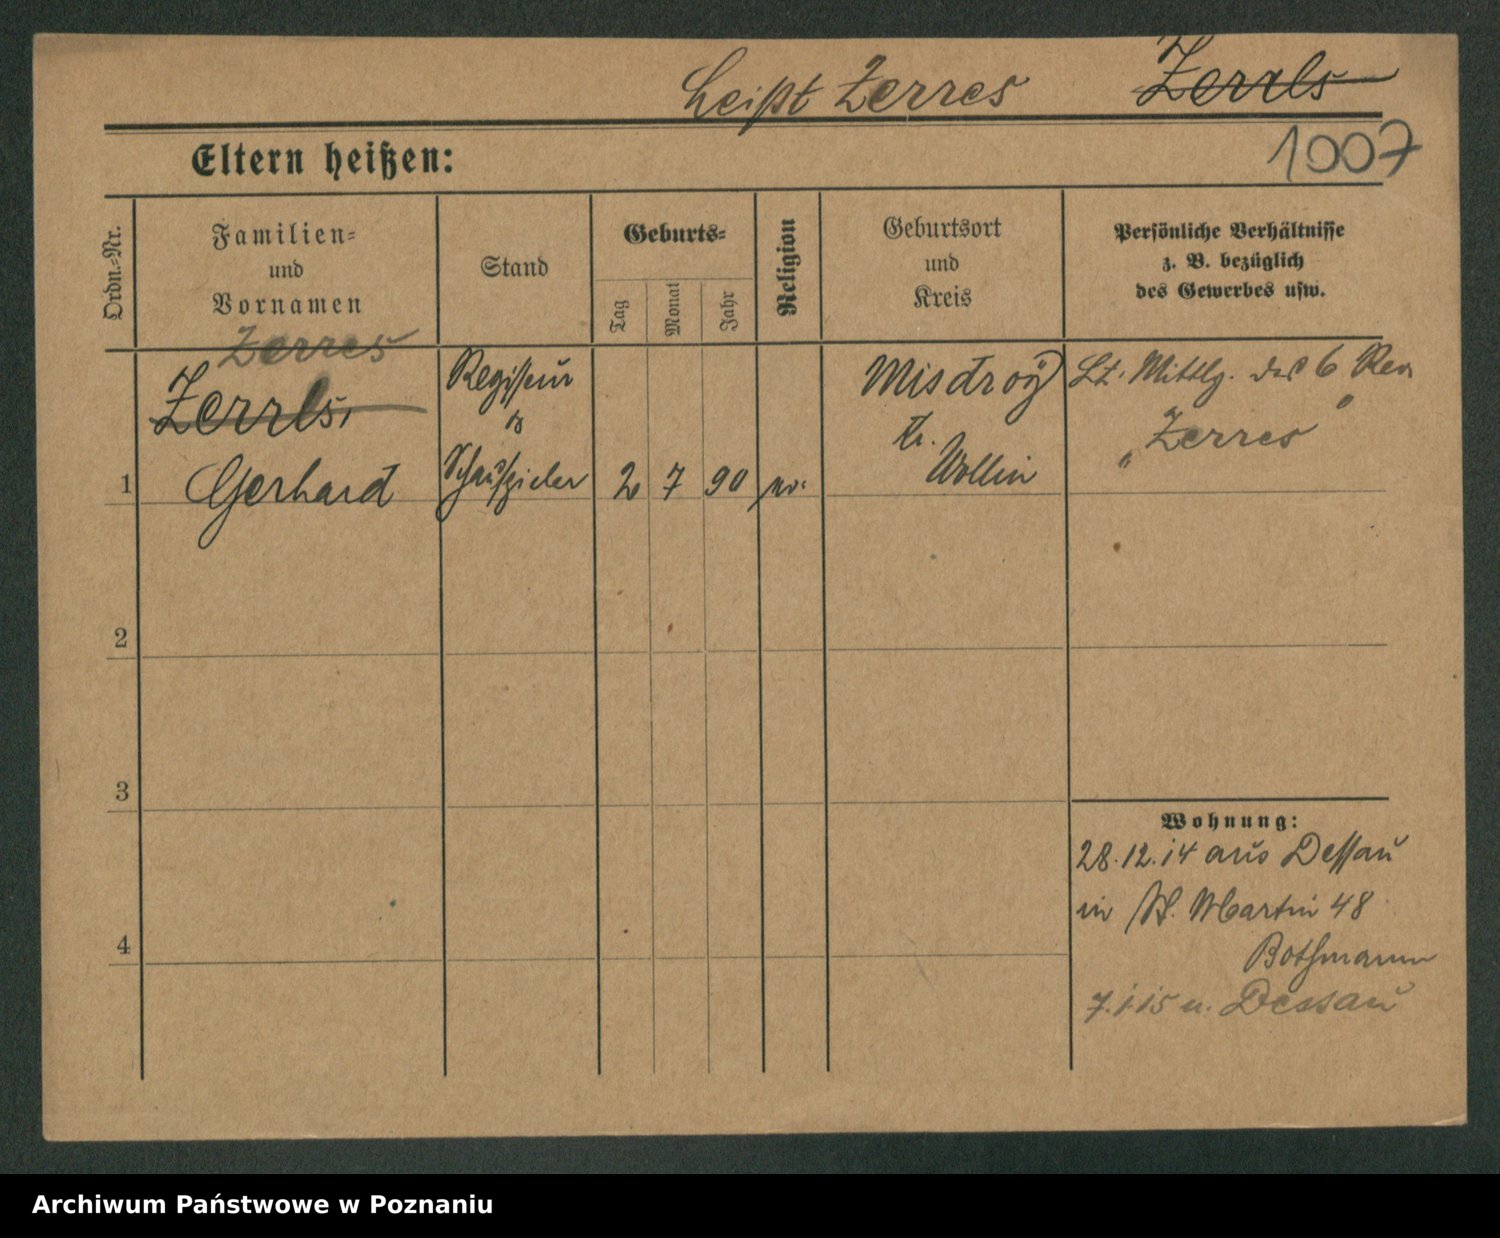 heißt Zerres Zerrls
1007
Eltern heißen:
Ordn.=Nr.
Familien=
und
Vornamen
Stand
Geburts=
Tag
Monat
Jahr
Religion
Geburtsort
und
Kreis
Persönliche Verhältnisse
z. B. bezüglich
des Gewerbes usw.
Zerres
Zerrls,
Gerhard
1
Regisseur
Schauspieler
2 7 90
Misdroy
Kr.
Wollin
Lt. Mittlg. des 6 Rev
„Zerres"
2
3
4
Wohnung:
28.12.14 aus Dessau
in St. Martin 48
Bothmann
7.1.15 n. Dessau
Archiwum Państwowe w Poznaniu